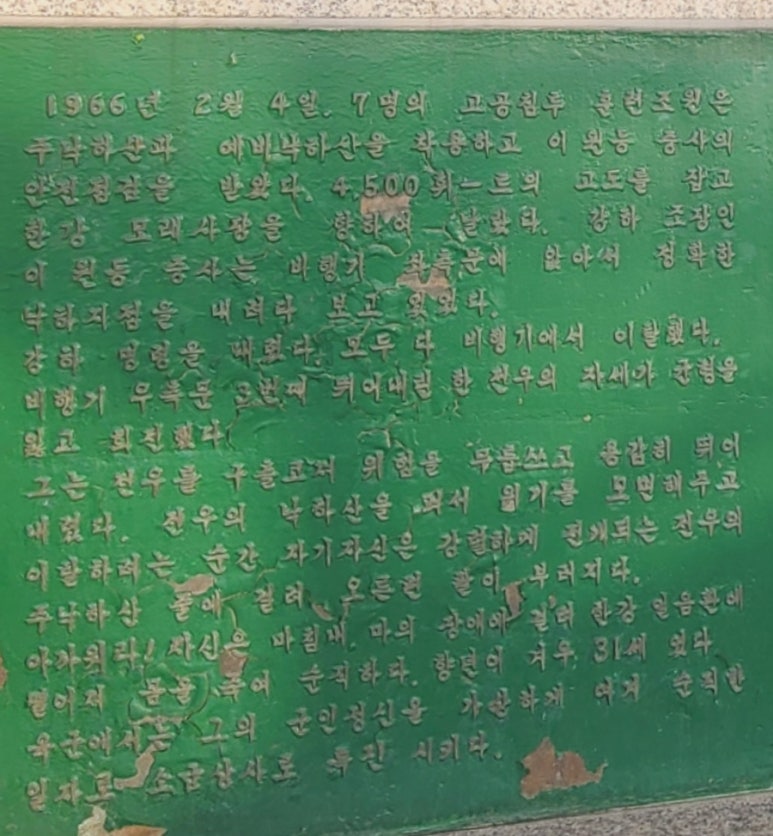 1966년 2월 4일. 7명의 고공침투 훈련조원은
주낙하산과 예비낙하산을 착용하고 이 원등 중사의
안전점검을 받았다. 4,500 의 고도를 잡고
한강 모래사장을 향하여 날랐다. 강하 조장인
이 원등 중사는 비행기 좌측문에 앉아서 정확한
낙하지점을 내려다 보고 있었다.
강하 명령을 내렸다. 모두 다 비행기에서 이탈했다.
비행기 우측문 3번째 뛰어내린 한 전우의 자세가 균형을
잃고 회전했다.
그는 전우를 구출코저 위험을 무릅쓰고 용감히 뛰어
내렸다. 전우의 낙하산을 펴서 위기를 모면해주고
이탈하려는 순간 자기자신은 강렬하게 전개되는 전우의
주낙하산 줄에 걸려 오른편 팔이 부러지다.
아가워라! 자신은 마침내 마의 장애에 걸려 한강 얼음판에
떨어져 순직하다. 향년이 겨우 31세 였다
육군에서는 그의 군인정신을 가상하게 여겨 순직한
일자로 소급상사로 추진 시키다.